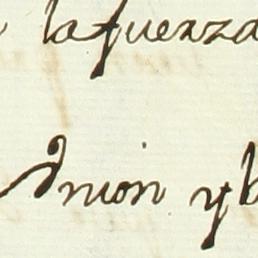 la fuerza
Union y b